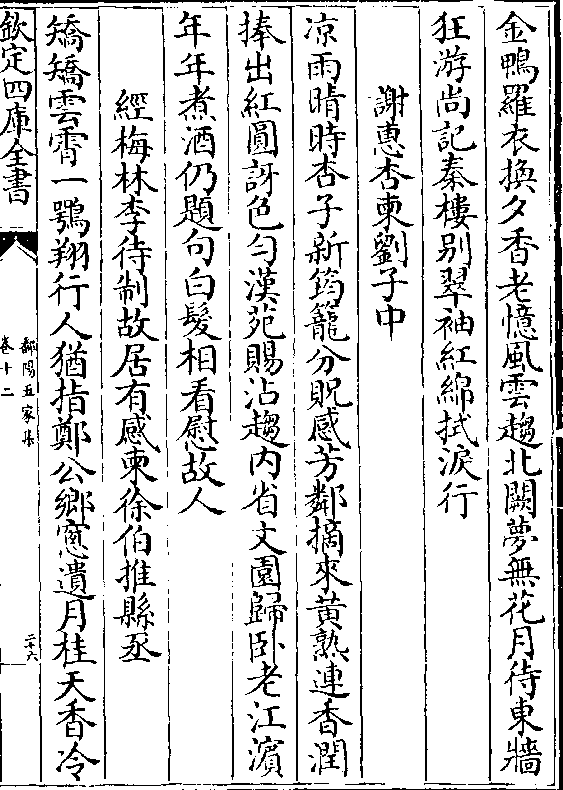 金鴨羅衣換夕香老憶風雲趨北闕夢無花月待東牆
狂游尚記秦樓别翠袖紅綿拭淚行
謝惠杏柬劉子中
凉雨晴時杏子新筠籠分貺感芳鄰摘來黄熟連香潤
捧出紅圓訝色勻漢苑賜沾趨内省文園歸卧老江濵
年年煮酒仍題句白髪相看慰故人
經梅林李待制故居有感柬徐伯推縣丞
矯矯雲霄一鶚翔行人猶指鄭公鄉窻遺月桂天香冷
欽定四庫全書
鄱陽五家集
卷十二
二十六